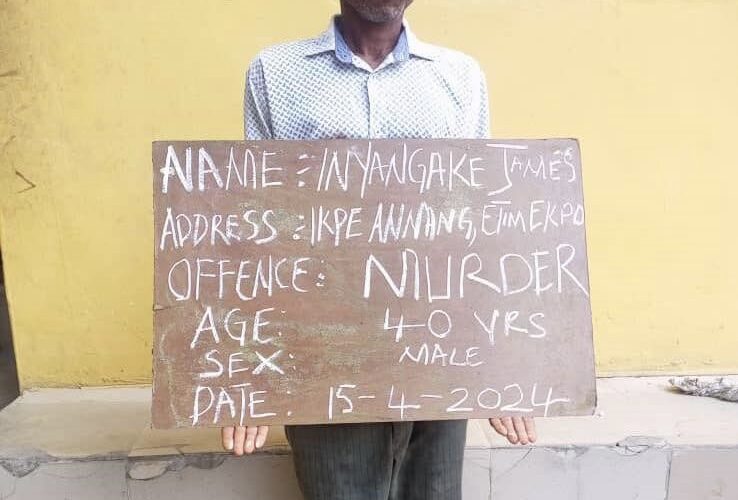 NAME :- INYANGAKE JAMES
ADDRESS :- IKPE ANNANG, ETIM EKPO
OFFENCE :- MURDER
AGE: 40 YRS
SEX: MALE
DATE: 15-4-2024